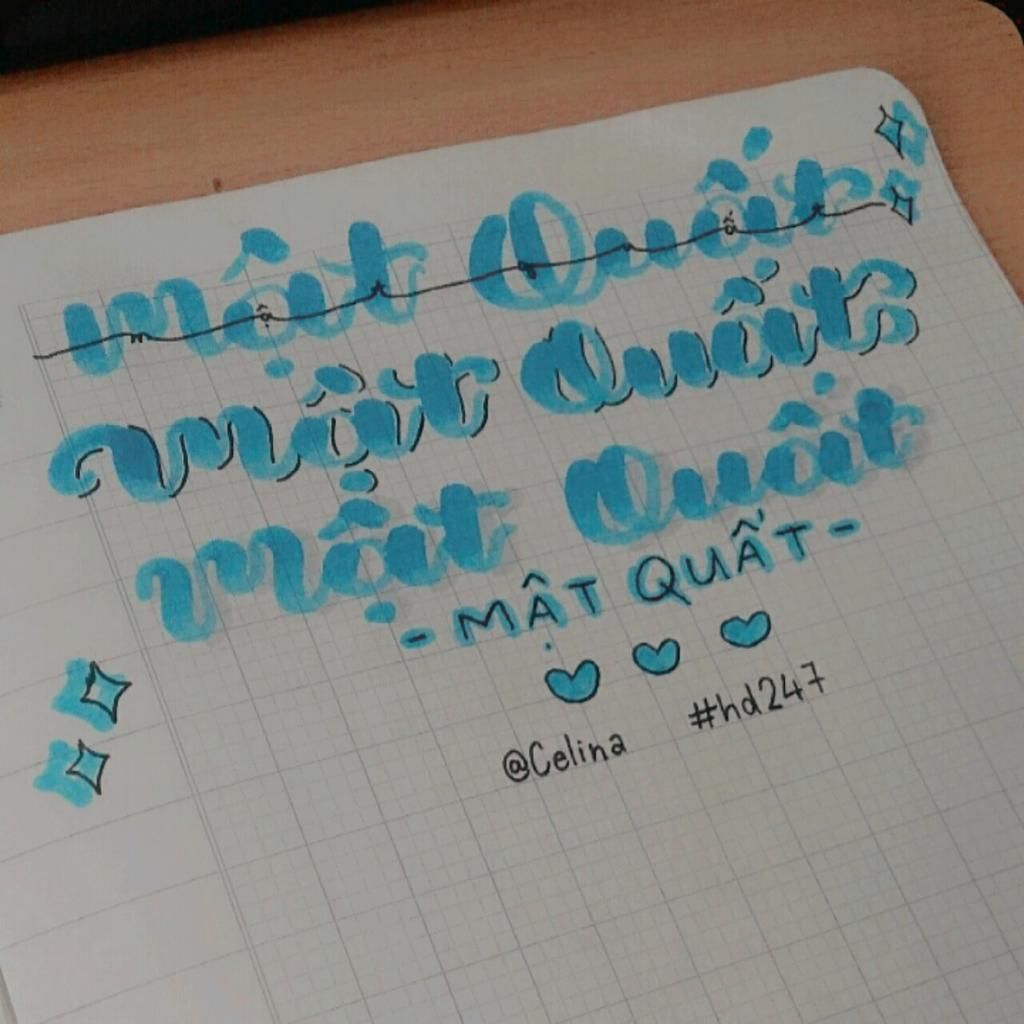 mật Quất
mật Quất
mật Quất
- MẬT QUẤT -
@Celina #hd247